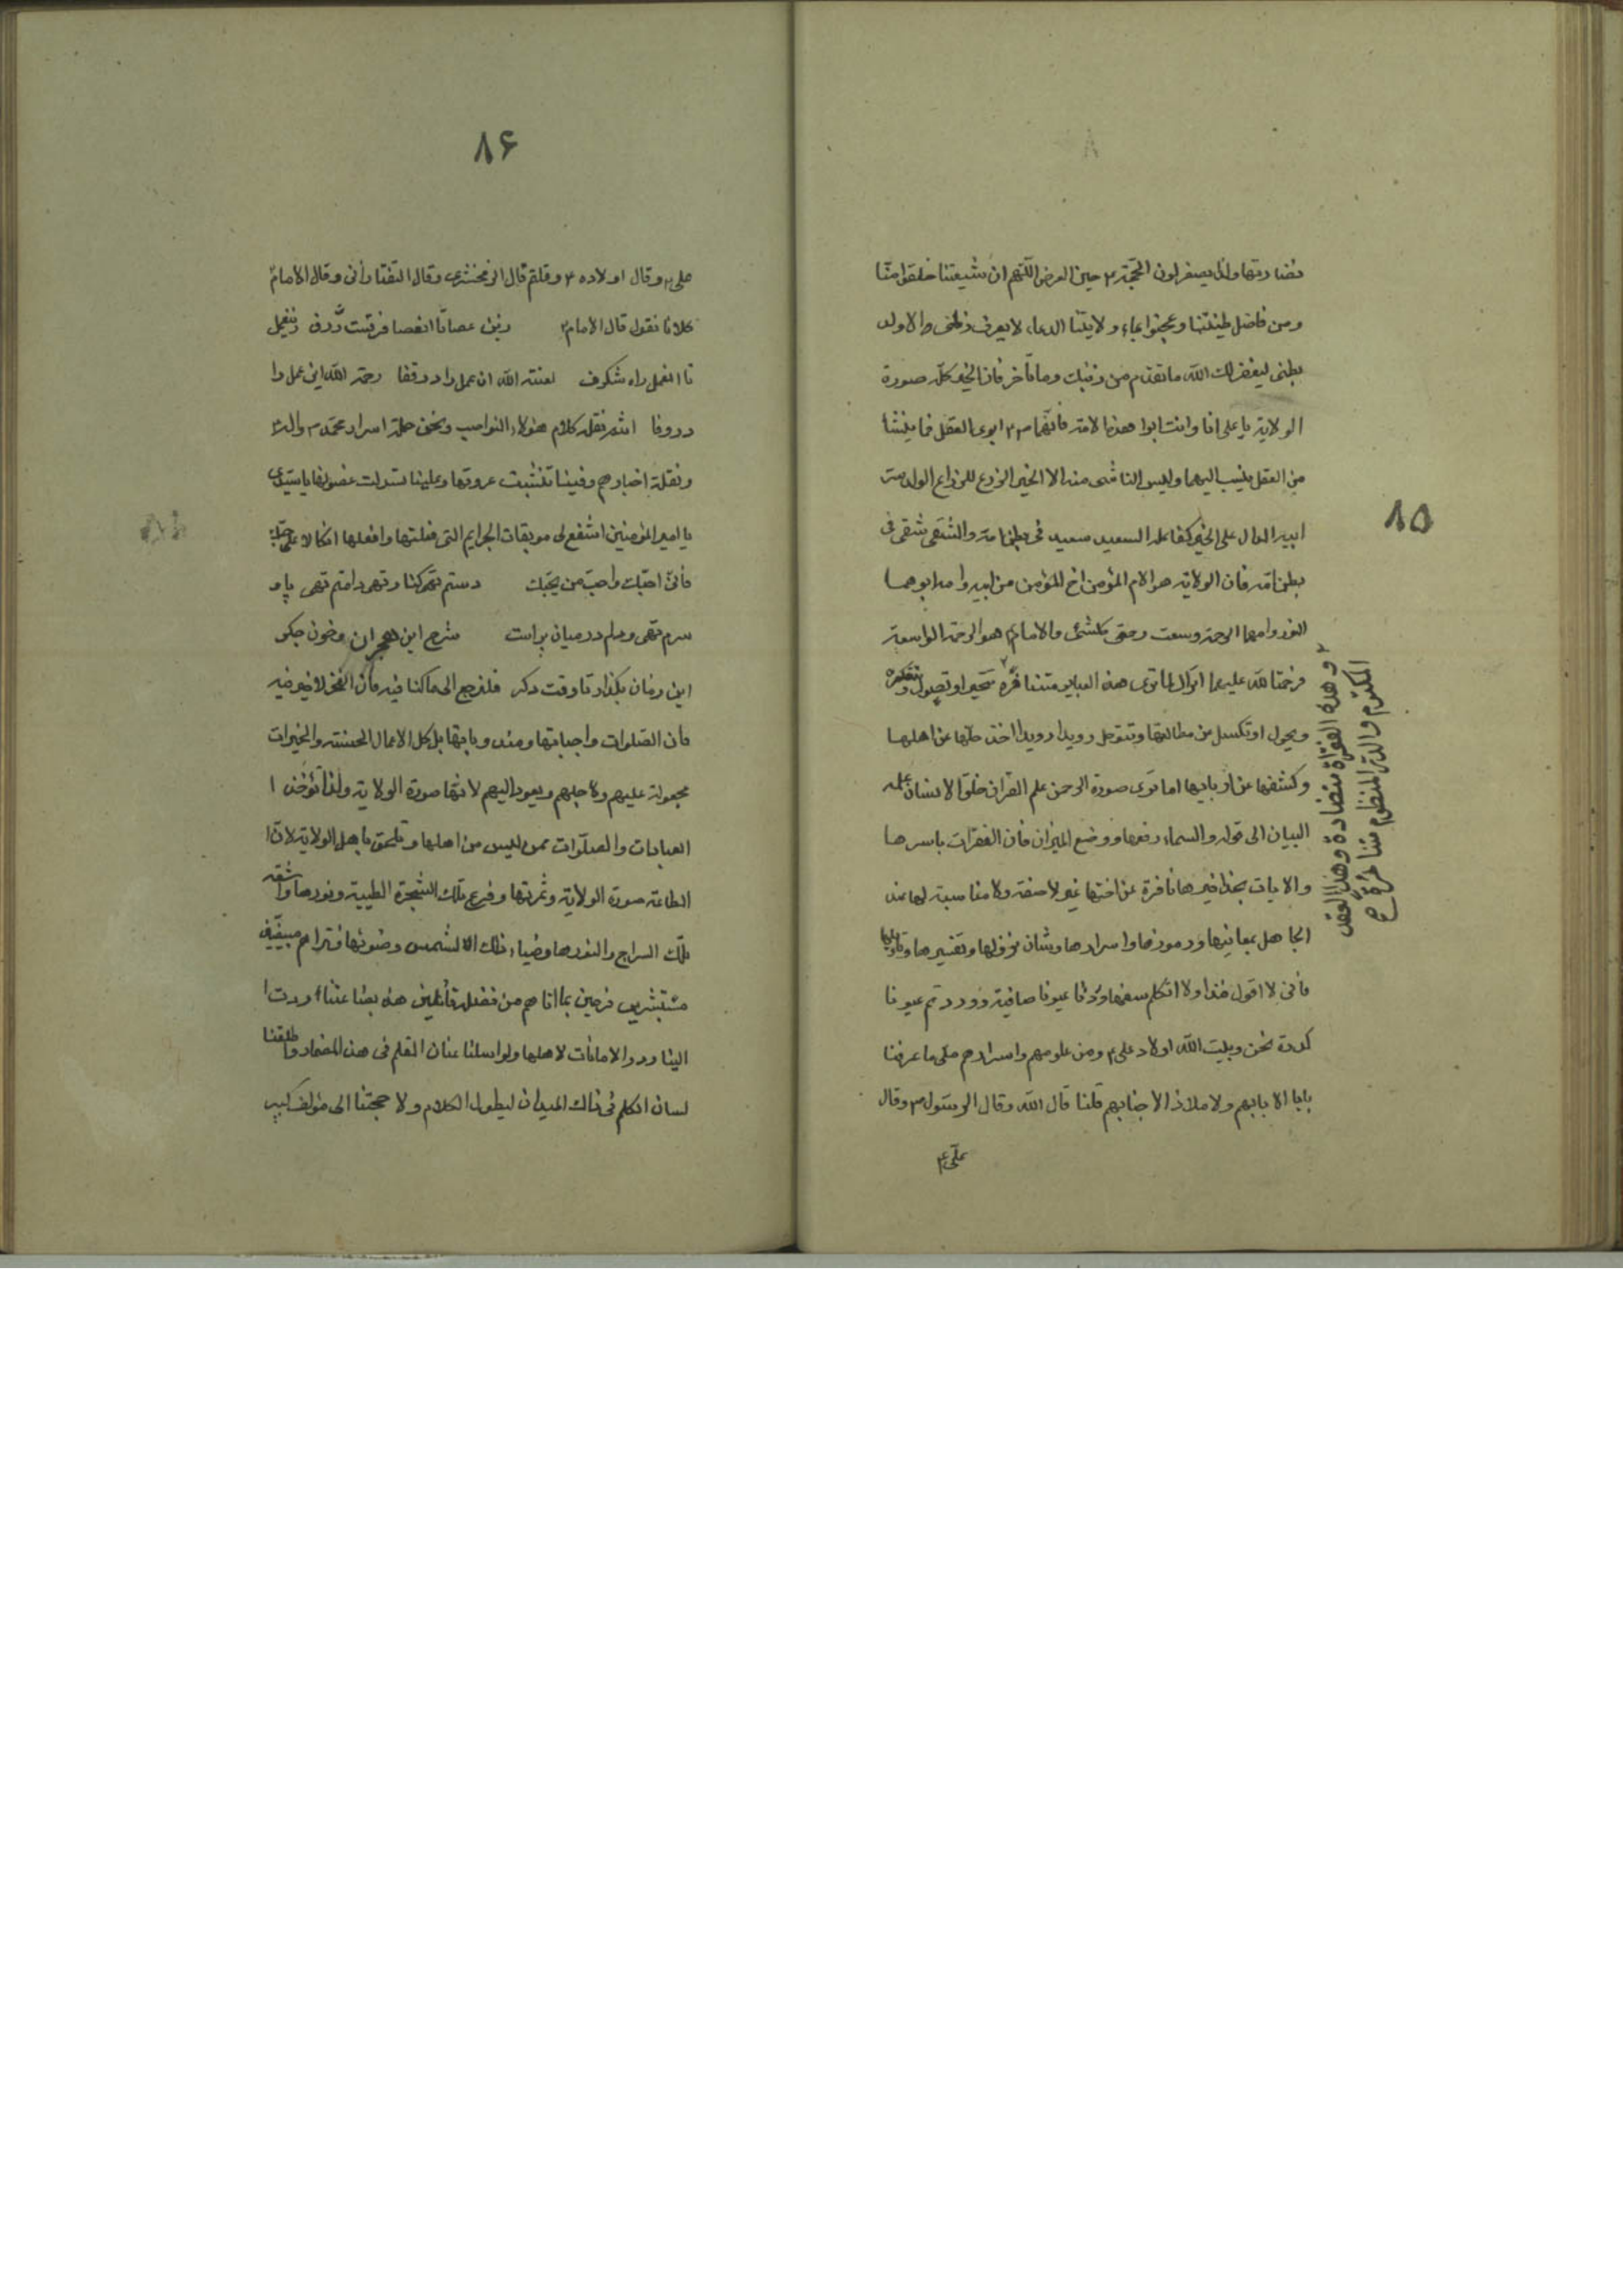 ٨۵
نضارتها ولذا يستغفرون الحجة ٣ حين العرض اللّهم انّ شيعتنا خلقوا منّا
ومن فاضل طينتنا وعجنوا بماء ولايتنا الدعاء لايعرف ذلك الاولد
بطنى ليغفر لك اللّه ماتقدم من ذنبك وماتأخر فان الخير كلّه صورة
الولاية يا على انا وانت ابوا هذه الامّة فانّهما ٣٢ ابوى العقل فما ينشأ
من العقل ينسب اليهما وليس الناشى منه الا الخير الزرع للزراع الولد سرّ
ابيه الدال على الخير كفاعله السعيد سعيد فى بطن امّه والشّقى شقى فى
بطن امّه فان الولاية هو الام المؤمن اخ المؤمن من ابيه وامه ابوهما
النور وامهما الرحمة وسعت رحمتى كلشئ والامام هو الرحمة الواسعة
فرحمة اللّه عليهما
ويحول او تكسل من مطالبتها وتتوحل رويدا رويدا اخذ حلّها عن اهلها
وكشفها عن اربابها اما ترى صورة الرحمن علم القران خلق الانسان علمه
البيان الى قوله والسماء رفعها ووضع الميزان فان الفقرات باسرها
والايات بحذافيرها نافرة عن اختها غير لاصقة ولا مناسبة لها عند
الجاهل بمعانيها ورموزها واسرارها وشان نزولها وتفسيرها وتأويلها
فأنى لا اقول هذا ولا اتكلم سفها وردنا عيونا صافية ووردتم عيونا
كدرة نحن وبيت اللّه اولاد على ٣ ومن علومهم واسرارهم ملى ما عرفنا
بابا الا بابهم ولا ملاذ الا جنابهم قلنا قال اللّه وقال الرسول ٣ وقال
علىّ ٣
وهذه الفقرة متضادة وهذا العقد
المكتوم والدرّ المنظوم متنافرة صح
٨۶
على ٣ وقال اولاده ٣ وقلتم قال الزمخشرى وقال التفتازانى وقال الامام
كلانا نقول قال الامام
تا انعمل راه شكرف لعنته اللّه ان عمل را در قفا رحمة اللّه اين عمل را
در وفا انتم نقلة كلام هؤلاء النواصب ونحن حملة اسرار محمّد ٣ واله ٣
ونقلة اخبارهم وفينا تنشّبت عروقها وعلينا تهدلت غصونها يا سيّدى
يا امير المؤمنين اشفع لى موبقات الجرايم التى فعلتها وافعلها اتكالا على حبّك
فأنى احبّك واحبّ من يحبّك دستم تهى كنار تهى دامنم تهى پا و
سرم تهى ودلم در ميان پر است شرح اين هجران وخون جكر
اين زمان بكذار تا وقت دكر فلنرجع الى ما كنا فيه فأن الفخر لاخير فيه
فأن الصّلوات واجباتها ومندوباتها بل كل الاعمال الحسنة والخيرات
مجعولة عليهم ولاجلهم ويعود اليهم لانّها صورة الولاية ولذا تؤخذ ا
العبادات والصلوات ممن ليس من اهلها وتلحق باهل الولاية لان ا
الطاعة صورة الولاية وثمرتها وفرع تلك الشجرة الطيبة ونورها واشعّة
تلك السراج والنور ها وضياء ذلك الشمس وضوئها فتراهم مبيضّين
مستبشرين فرحين بما اتاهم من فضله قائلين هذه بضاعتنا ردت ا
الينا وردوا الامانات لاهلها ولو ارسلنا عنان القلم فى هذا المضمار واطلقنا
لسان الكلم فى ذاك الميدان ليطول الكلام ولا حجتنا الى مؤلف كبير